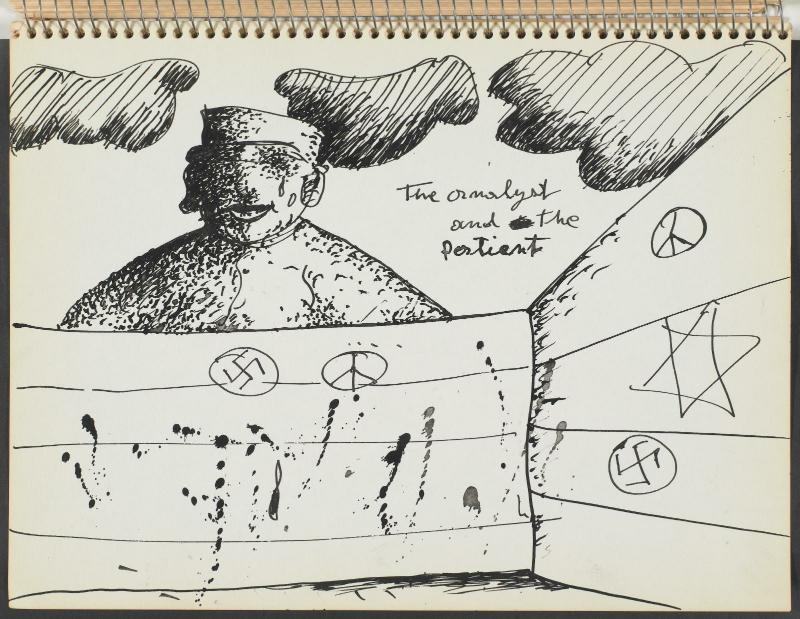 The analyst
and the
patient